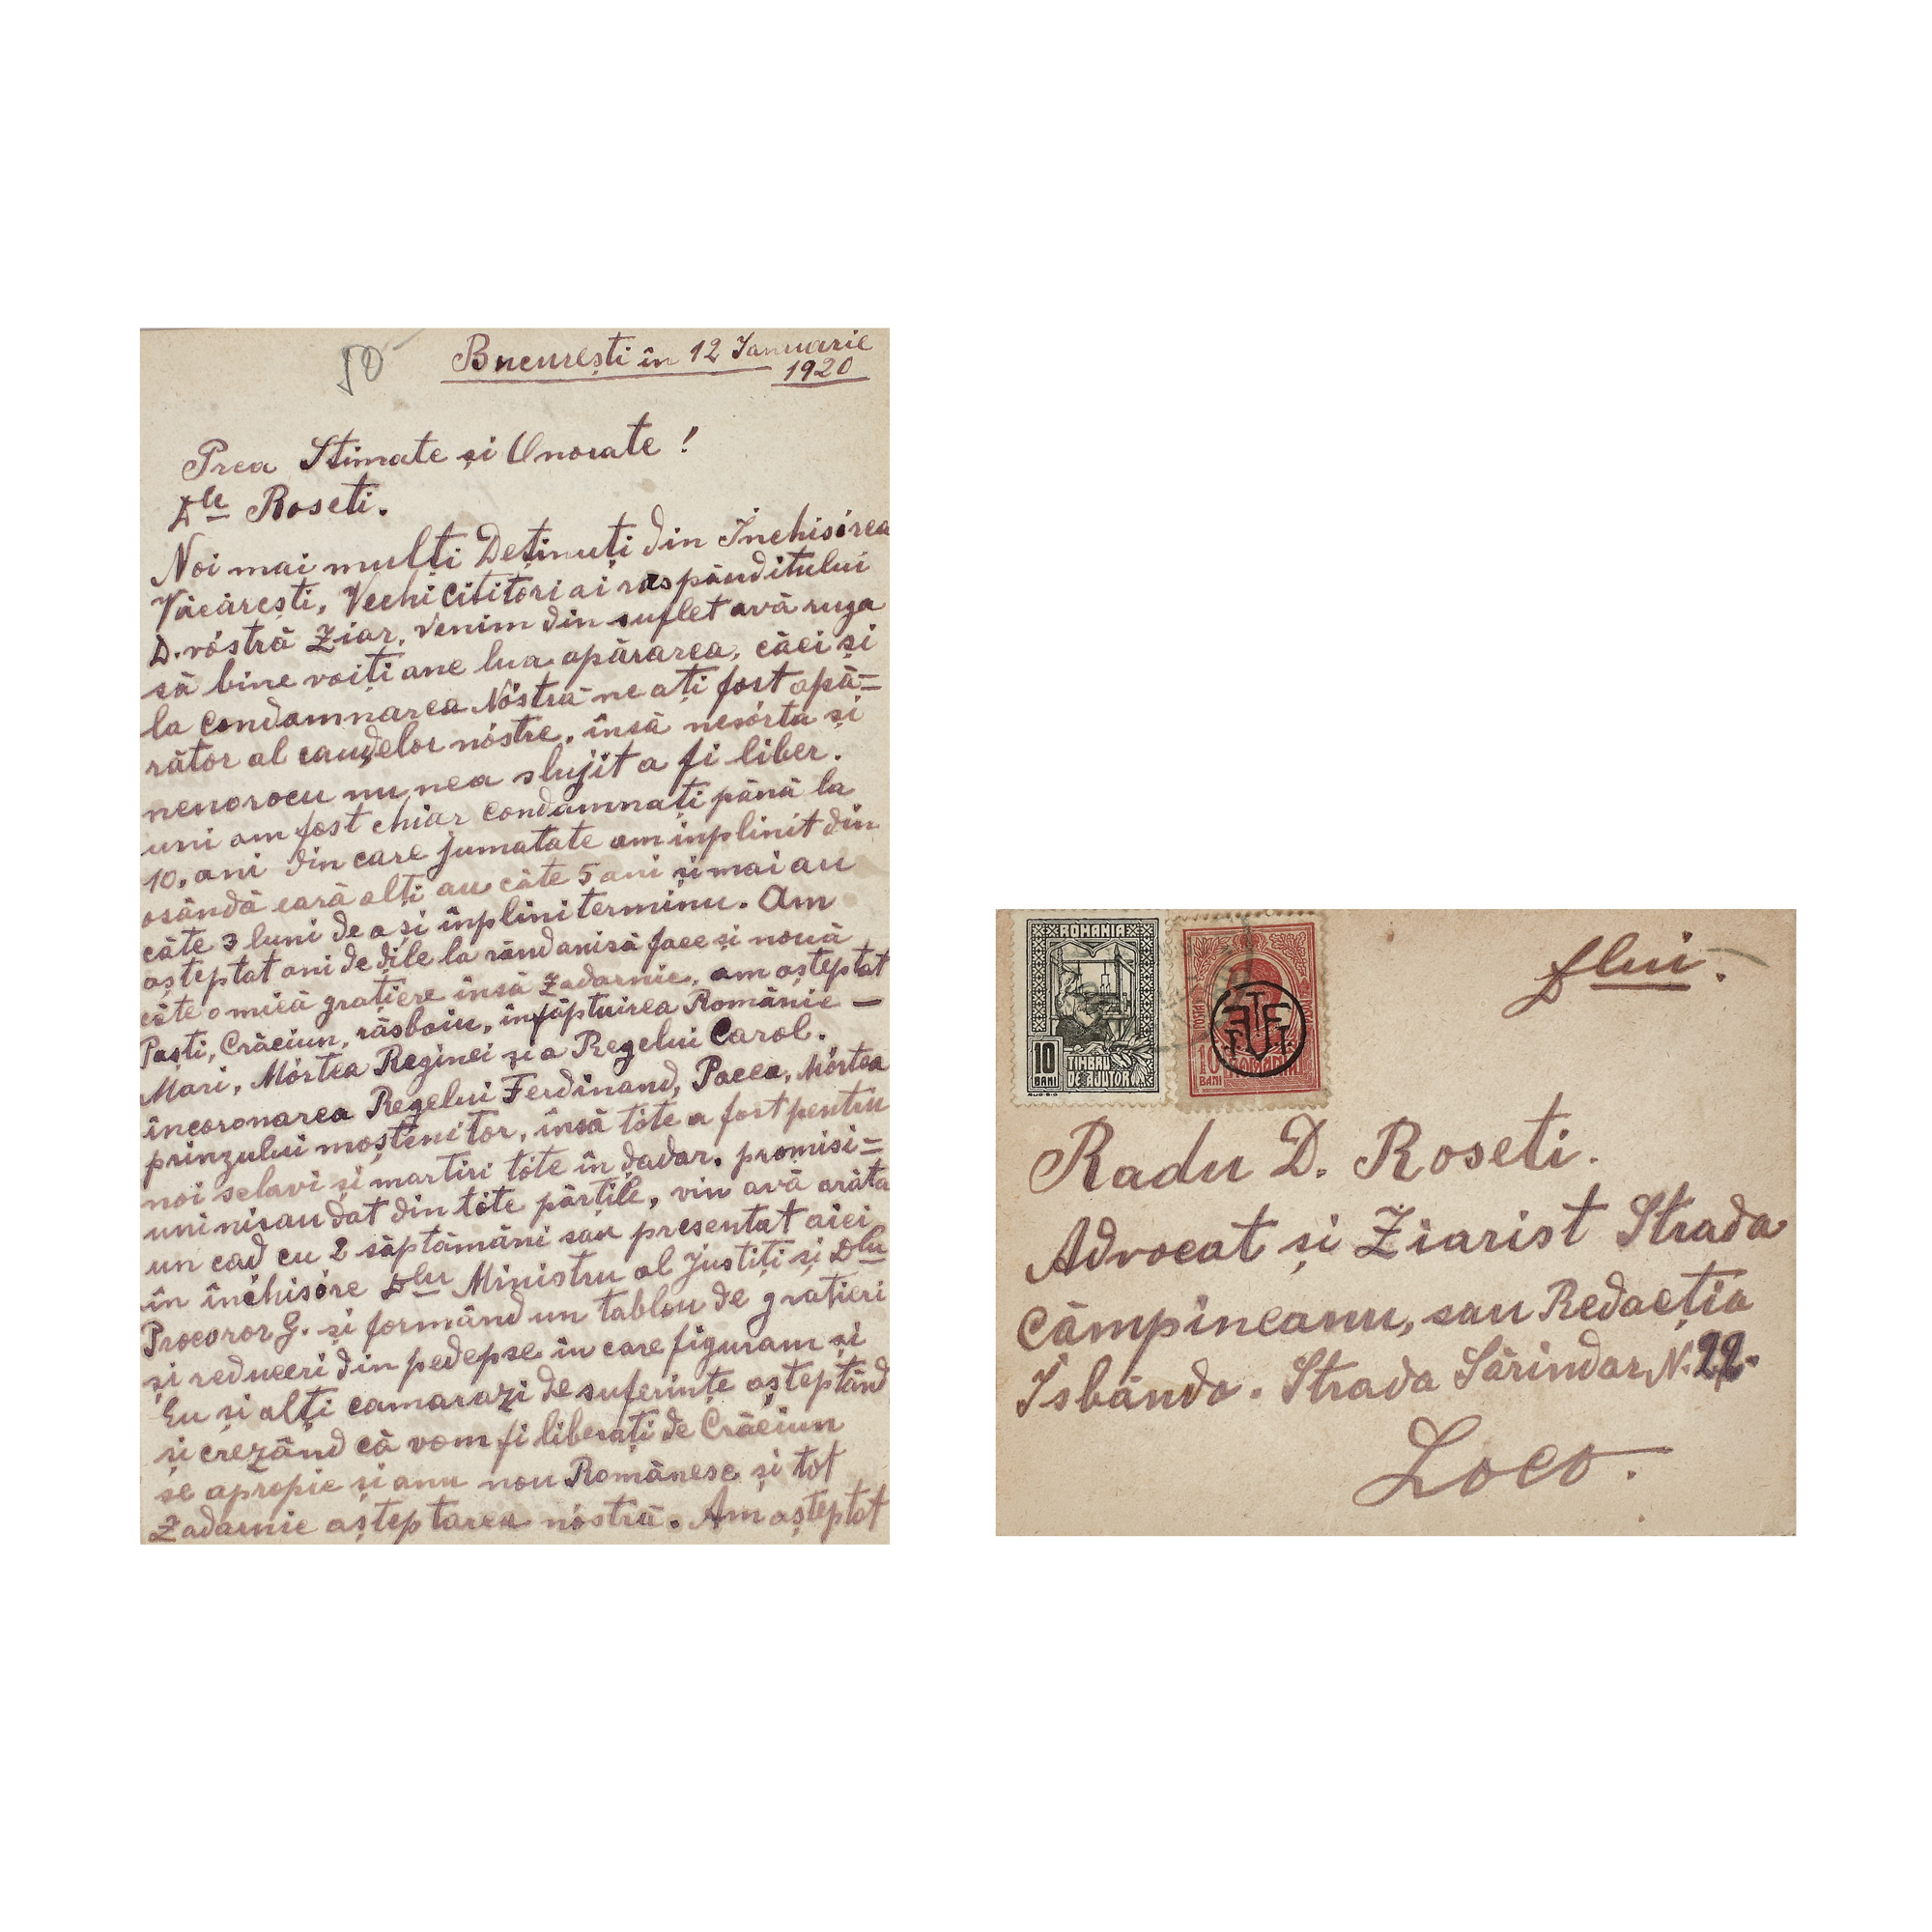 50
București în 12 Ianuarie
1920
Prea Stimate și Onorate!
Dle Roseti.
Noi mai mulți Deținuți din Închisórea
Văcărești, Vechi Cititori ai raspânditului
D. vóstră Ziar, venim din suflet avă ruga
să bine voiți ane lua apărarea, căci și
la Condamnarea Nóstră ne ați fost apă=
rător al caudelor nóstre, însă nesórta și
nenorocu nu nea slujit a fi liber.
uni am fost chiar condamnați până la
10. ani din care jumatate am înplinit din
osândă eară alți au câte 5 ani și mai au
câte 3 luni de a și înplini terminu. Am
așteptat ani de dile la rând anisă face și nouă
câte o mică grațiere însă Zadarnic, am așteptat
Paști, Crăciun, răsboiu, înfăptuirea Românie —
Mari, Mórtea Reginei și a Regelui Carol.
încoronarea Regelui Ferdinand, Pacea, Mórtea
prinzului moștenitor, însă tóte a fost pentru
noi sclavi și martiri tóte în dadar. promisi=
uni nisau dat din tóte părțile, vin avă arăta
un cad cu 2 săptămâni sau presentat aici
în închisóre Dlu Ministru al Justiți și Dlu
Procoror G. și formând un tablou de grațieri
și reduceri din pedepse în care figuram și
Eu și alți camarazi de suferințe așteptând
și crezând că vom fi liberați de Crăciun
se apropie și anu nou Românesc și tot
Zadarnic așteptarea nóstră. Am așteptat
ROMANIA
10
BANI
TIMBRU
DE AJUTOR
POSTA
10
BANI
ROMANIA
Dlui.
Radu D. Roseti.
Advocat și Ziarist Strada
Câmpineanu, sau Redacția
Isbânda. Strada Sărindar N. 22.
Loco.